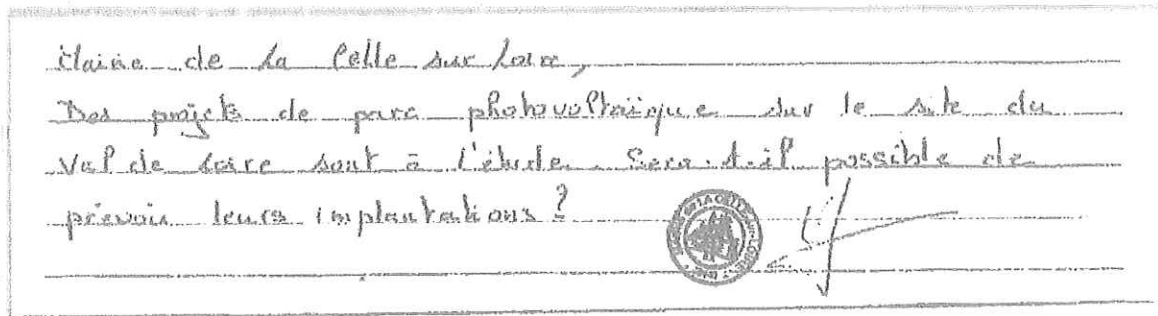 Mairie de La Celle sur Loire,
Des projets de parc photovoltaïque sur le site du
Val de Loire sont à l'étude. Sera-t-il possible de
prévoir leurs implantations ?